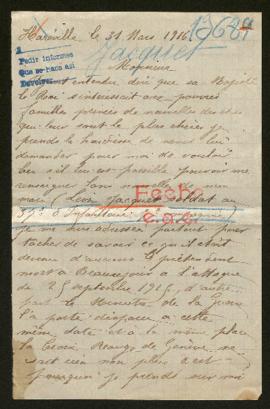 Hareville le 31 Mars 1916
13689
Jacquet
Pedir informes
Que se haga así
Devolver
Monsieur
entendu dire que sa Majesté
le Roi s'intéressait aux pauvres
familles privées de nouvelles de ceux
qui leur sont le plus chers je
prends la hardiesse de vous
demander pour moi de vouloir
bien s'il est possible pouvoir me
renseigner sans nouvelle de mon
mari (Léon Jacquet soldat au
37e d'Infanterie
Fecho
je me suis adressée partout pour
tâcher de savoir ce qu'il était
devenu d'aucuns le prétendent
mort à Beausejour à l'attaque
du 25 septembre 1915, d'autre
part le Ministre de la Guerre
l'a porté disparu à cette
même date et à la même place
la Croix Rouge de Genève ne
sait rien non plus c'est
pourquoi je prends sur moi